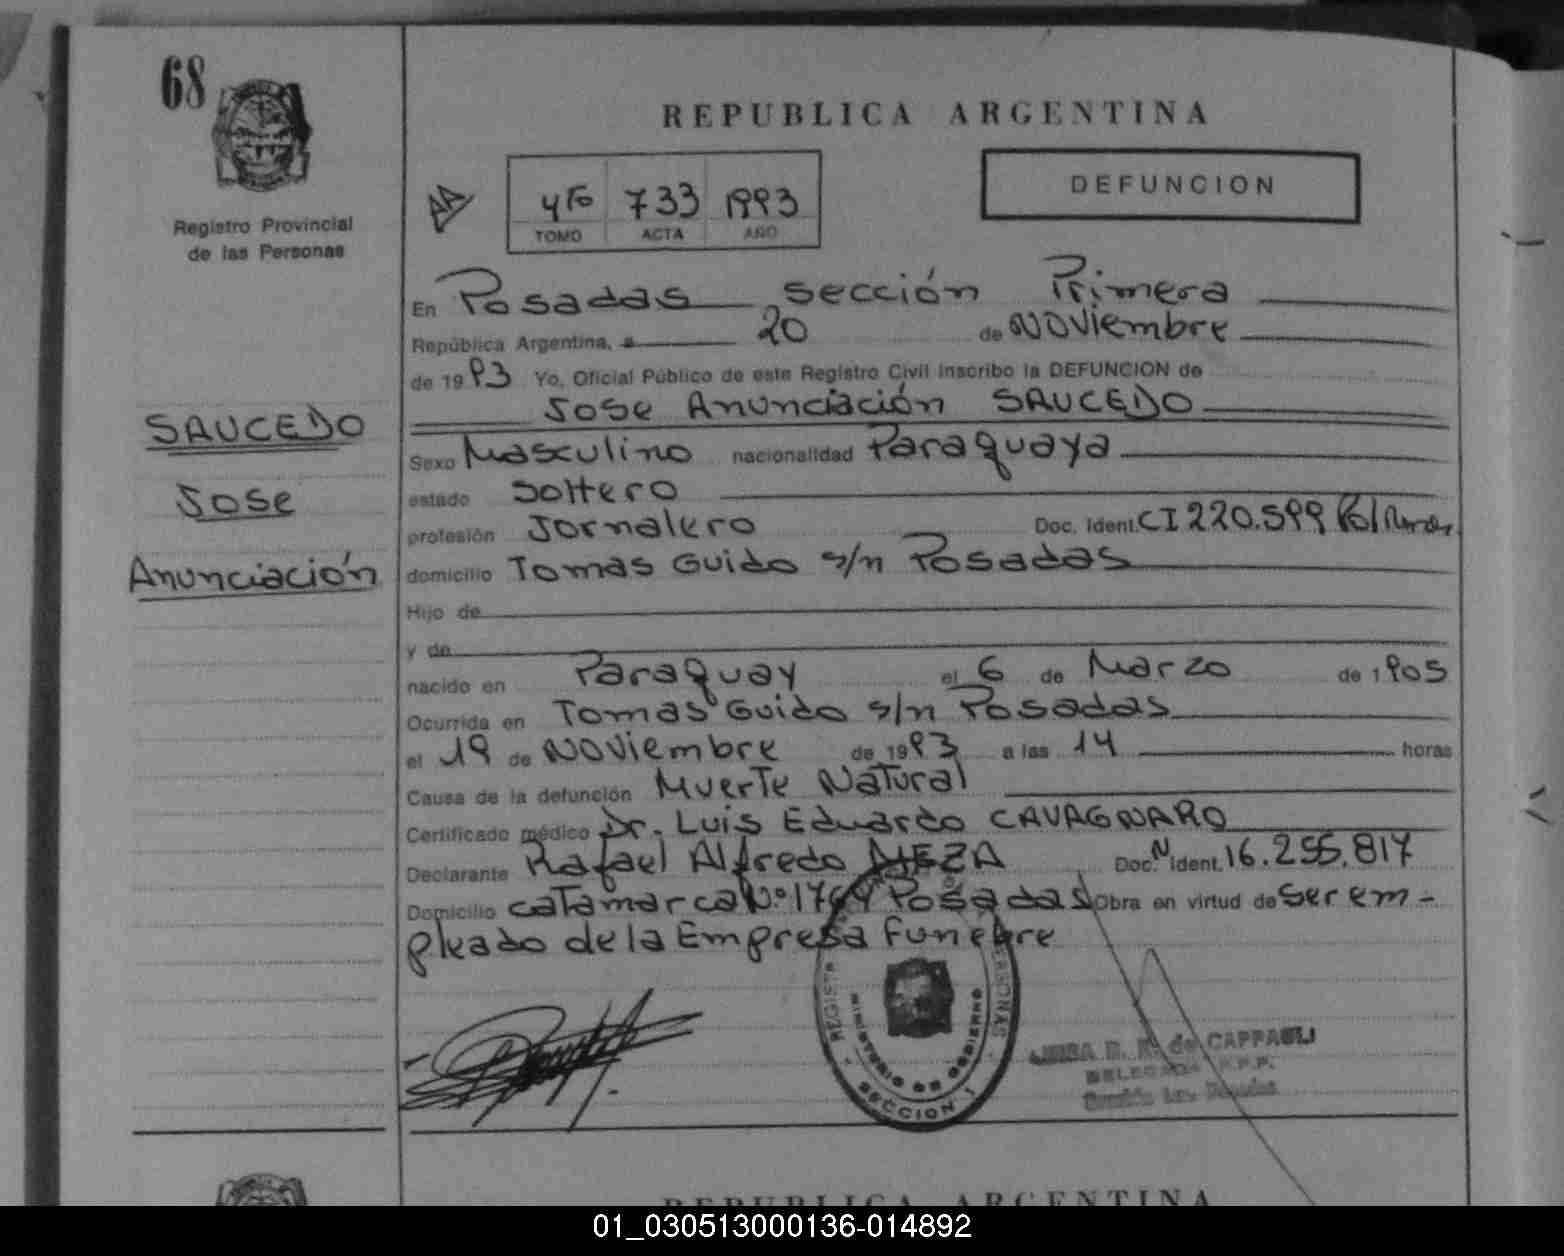 68
REPUBLICA ARGENTINA
Registro Provincial
de las Personas
4to 733 1993
TOMO ACTA AÑO
DEFUNCION
En Posadas sección Primera
República Argentina, a 20 de Noviembre
de 1993 Yo, Oficial Público de este Registro Civil inscribo la DEFUNCION de
Jose Anunciación SAUCEDO
SAUCEDO
Jose
Anunciación
Sexo Masculino nacionalidad Paraguaya
estado Soltero
profesión Jornalero Doc. Ident. CI 220.599
domicilio Tomas Guido s/n Posadas
Hijo de
y de
nacido en Paraguay el 6 de Marzo de 1905
Ocurrida en Tomas Guido s/n Posadas
el 19 de Noviembre de 1993 a las 14 horas
Causa de la defunción Muerte Natural
Certificado médico Dr. Luis Eduardo CAVAGNARO
Declarante Rafael Alfredo MEZA Doc. N Ident. 16.255.817
Domicilio catamarca Nº Posadas Obra en virtud de Ser em-
pleado de la Empresa Funebre
MINISTERIO DE GOBIERNO
SECCION 1
de CAPPAULI
REPUBLICA ARGENTINA
01_030513000136-014892